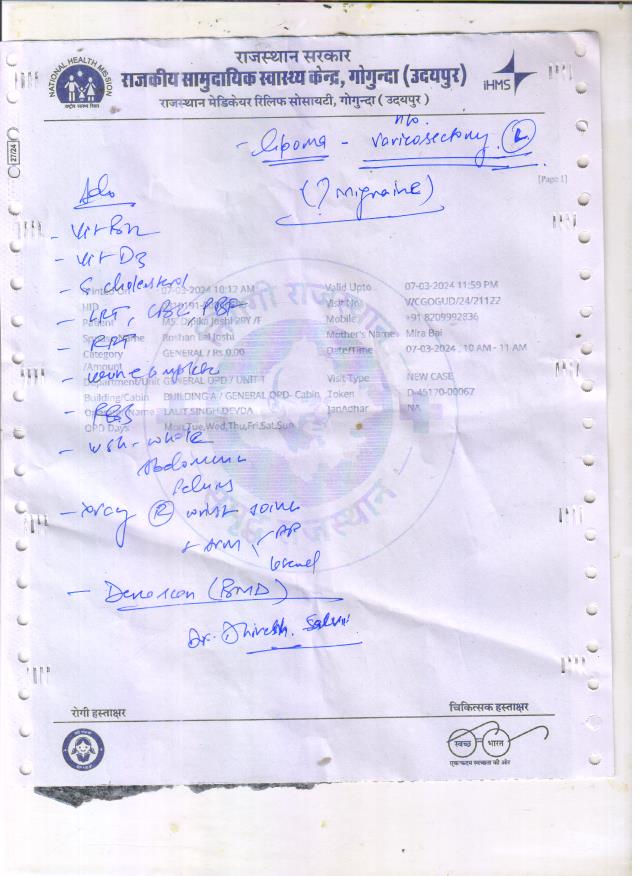 NATIONAL HEALTH MISSION
राष्ट्रीय स्वास्थ्य मिशन
राजस्थान सरकार
राजकीय सामुदायिक स्वास्थ्य केन्द्र, गोगुन्दा (उदयपुर)
राजस्थान मेडिकेयर रिलिफ सोसायटी, गोगुन्दा ( उदयपुर )
iHMS
27/24
- lipoma - varicosectomy (L)
[Page 1]
(? migraine)
Adv
- Vit B12
- Vit D3
- S cholesterol
Printed On 07-03-2024 10:12 AM Valid Upto 07-03-2024 11:59 PM
HID Visit No WCGOGUD/24/21122
- LFT, CBC, PBF
Patient Mobile +91 8209992836
- RFT
Roshan Lal Joshi Mother's Name Mira Bai
Category GENERAL / Rs 0.00 Date/Time 07-03-2024 , 10 AM - 11 AM
/Amount
- urine complete
Department/Unit GENERAL OPD / UNIT 1 Visit Type NEW CASE
Building/Cabin BUILDING A / GENERAL OPD- Cabin Token D-45170-00067
- RBS
Name LALIT SINGH DEVDA JanAdhar NA
OPD Days Mon,Tue,Wed,Thu,Fri,Sat,Sun
- USG - whole
Abdomen
Pelvis
- xray (R) wrist joint
+ arm AP
lateral
- Dexascan (BMD)
Dr.
रोगी हस्ताक्षर चिकित्सक हस्ताक्षर
स्वच्छ भारत
एक कदम स्वच्छता की ओर